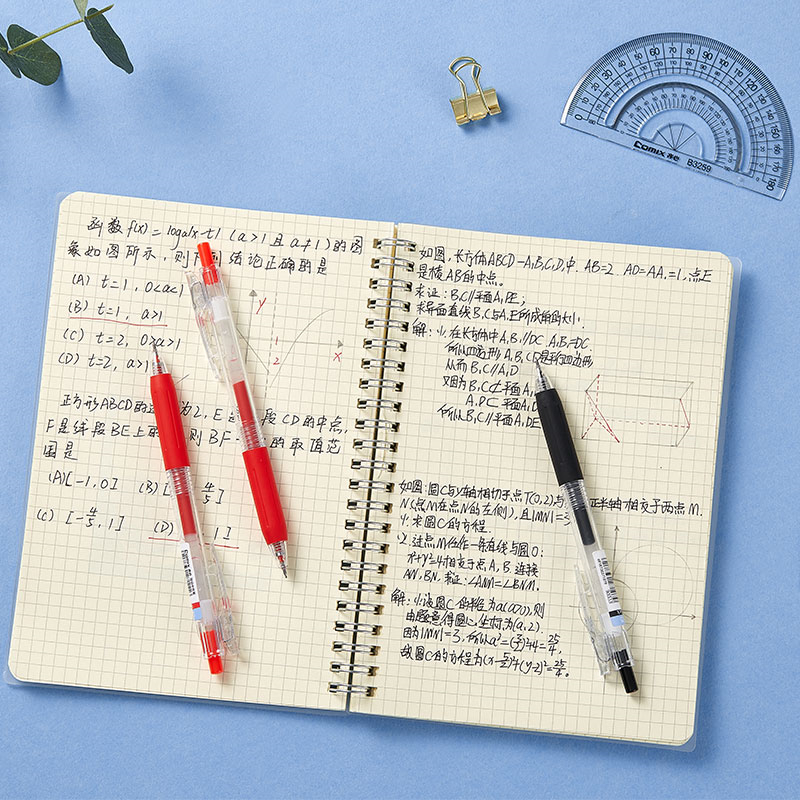 函数 f(x) = loga|x-t| (a>1 且 a≠1) 的图
象如图所示,则 结论正确的是
(A) t=1, 0<a<1
(B) t=1, a>1
(C) t=2, 0>a>1
(D) t=2, a>1
y
x
1
2
正方形ABCD的 为2, E是 段CD的中点,
F是线段BE上的 则 BF 的取值范
围是
(A)[-1,0] (B) 4/5]
(C) [-4/5, 1] (D) 1]
如图,长方体ABCD-A₁B₁C₁D₁中. AB=2. AD=AA₁=1,点E
是棱AB的中点。
求证: B₁C//平面A₁DE;
求异面直线B₁C与A₁E所成角的大小.
解: 在长方体中A₁B₁//DC. A₁B₁=DC.
所以四边形A₁B₁CD是平行四边形
从而B₁C//A₁D
又因为B₁C⊄平面A₁
A₁D⊂平面A₁D
所以B₁C//平面A₁DE
如图:圆C与y轴相切于点T(0,2),与 正半轴相交于两点M.
N(点M在点N的左侧),且|MN|=3
求圆C的方程.
过点M任作一条直线与圆O:
x²+y²=4相交于点A, B. 连接
AN, BN. 求证: ∠ANM=∠BNM.
解: 设圆C的半径为a(a>0),则
由题意得圆心坐标为(a,2).
因为|MN|=3, 所以a²=(3/2)²+4=25/4,
故圆C的方程为(x-5/2)²+(y-2)²=25/4。
Comix 齐心 B3259